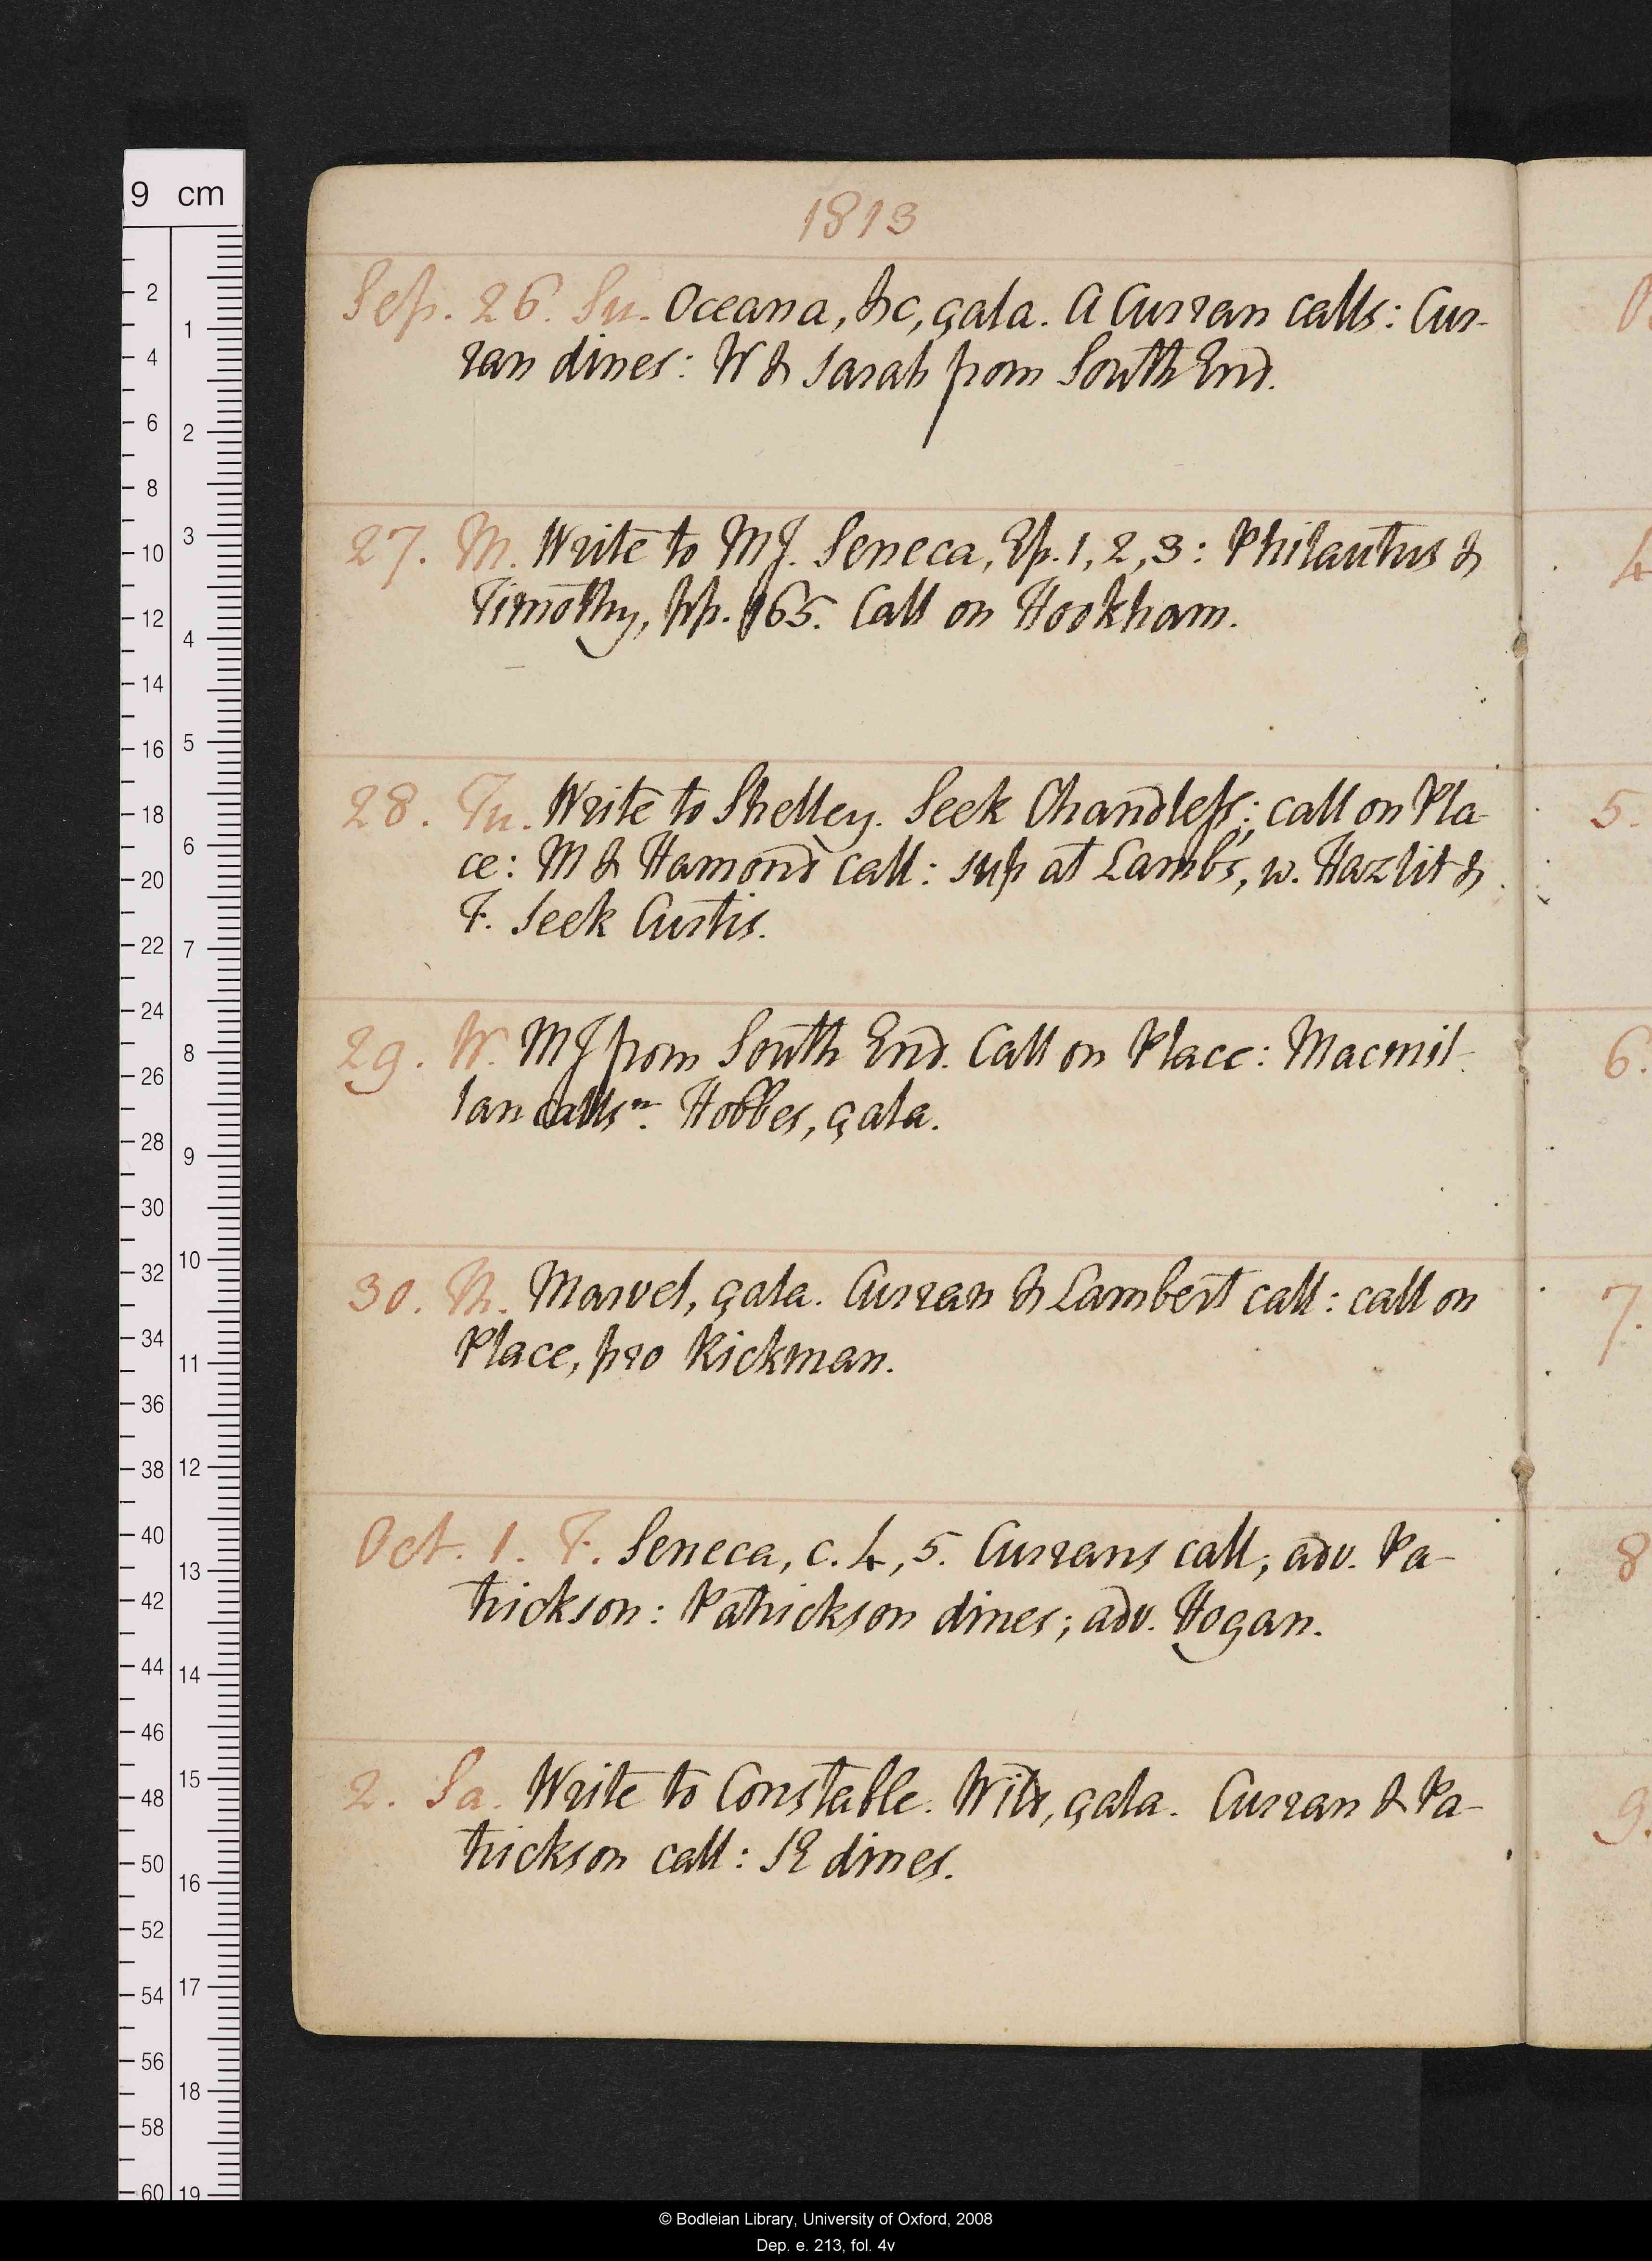 1813
Sep. 26. Su. Oceana, &c, çala. A Curran calls: Cur-
ran dines: W & Sarah from South End.
27. M. Write to MJ. Seneca, Ep. 1, 2, 3: Philautus &
Timothy, pp. 165. Call on Hookham.
28. Tu. Write to Shelley. Seek Chandless; call on Pla-
ce: M & Hamond call: sup at Lamb's, w. Hazlit &
F. Seek Curtis.
29. W. MJ from South End. Call on Place: Macmil-
lan calls n. Hobbes, çala.
30. Th. Marvel, çala. Curran & Lambert call: call on
Place, pro Rickman.
Oct. 1. F. Seneca, c. 4, 5. Currans call, adv. Pa-
trickson: Patrickson dines; adv. Hogan.
2. Sa. Write to Constable. çala. Curran & Pa-
trickson call: SE dines.
4
5.
6.
7.
8
9.
9 cm
2
4
6
8
10
12
14
16
18
20
22
24
26
28
30
32
34
36
38
40
42
44
46
48
50
52
54
56
58
60
1
2
3
4
5
6
7
8
9
10
11
12
13
14
15
16
17
18
19
© Bodleian Library, University of Oxford, 2008
Dep. e. 213, fol. 4v